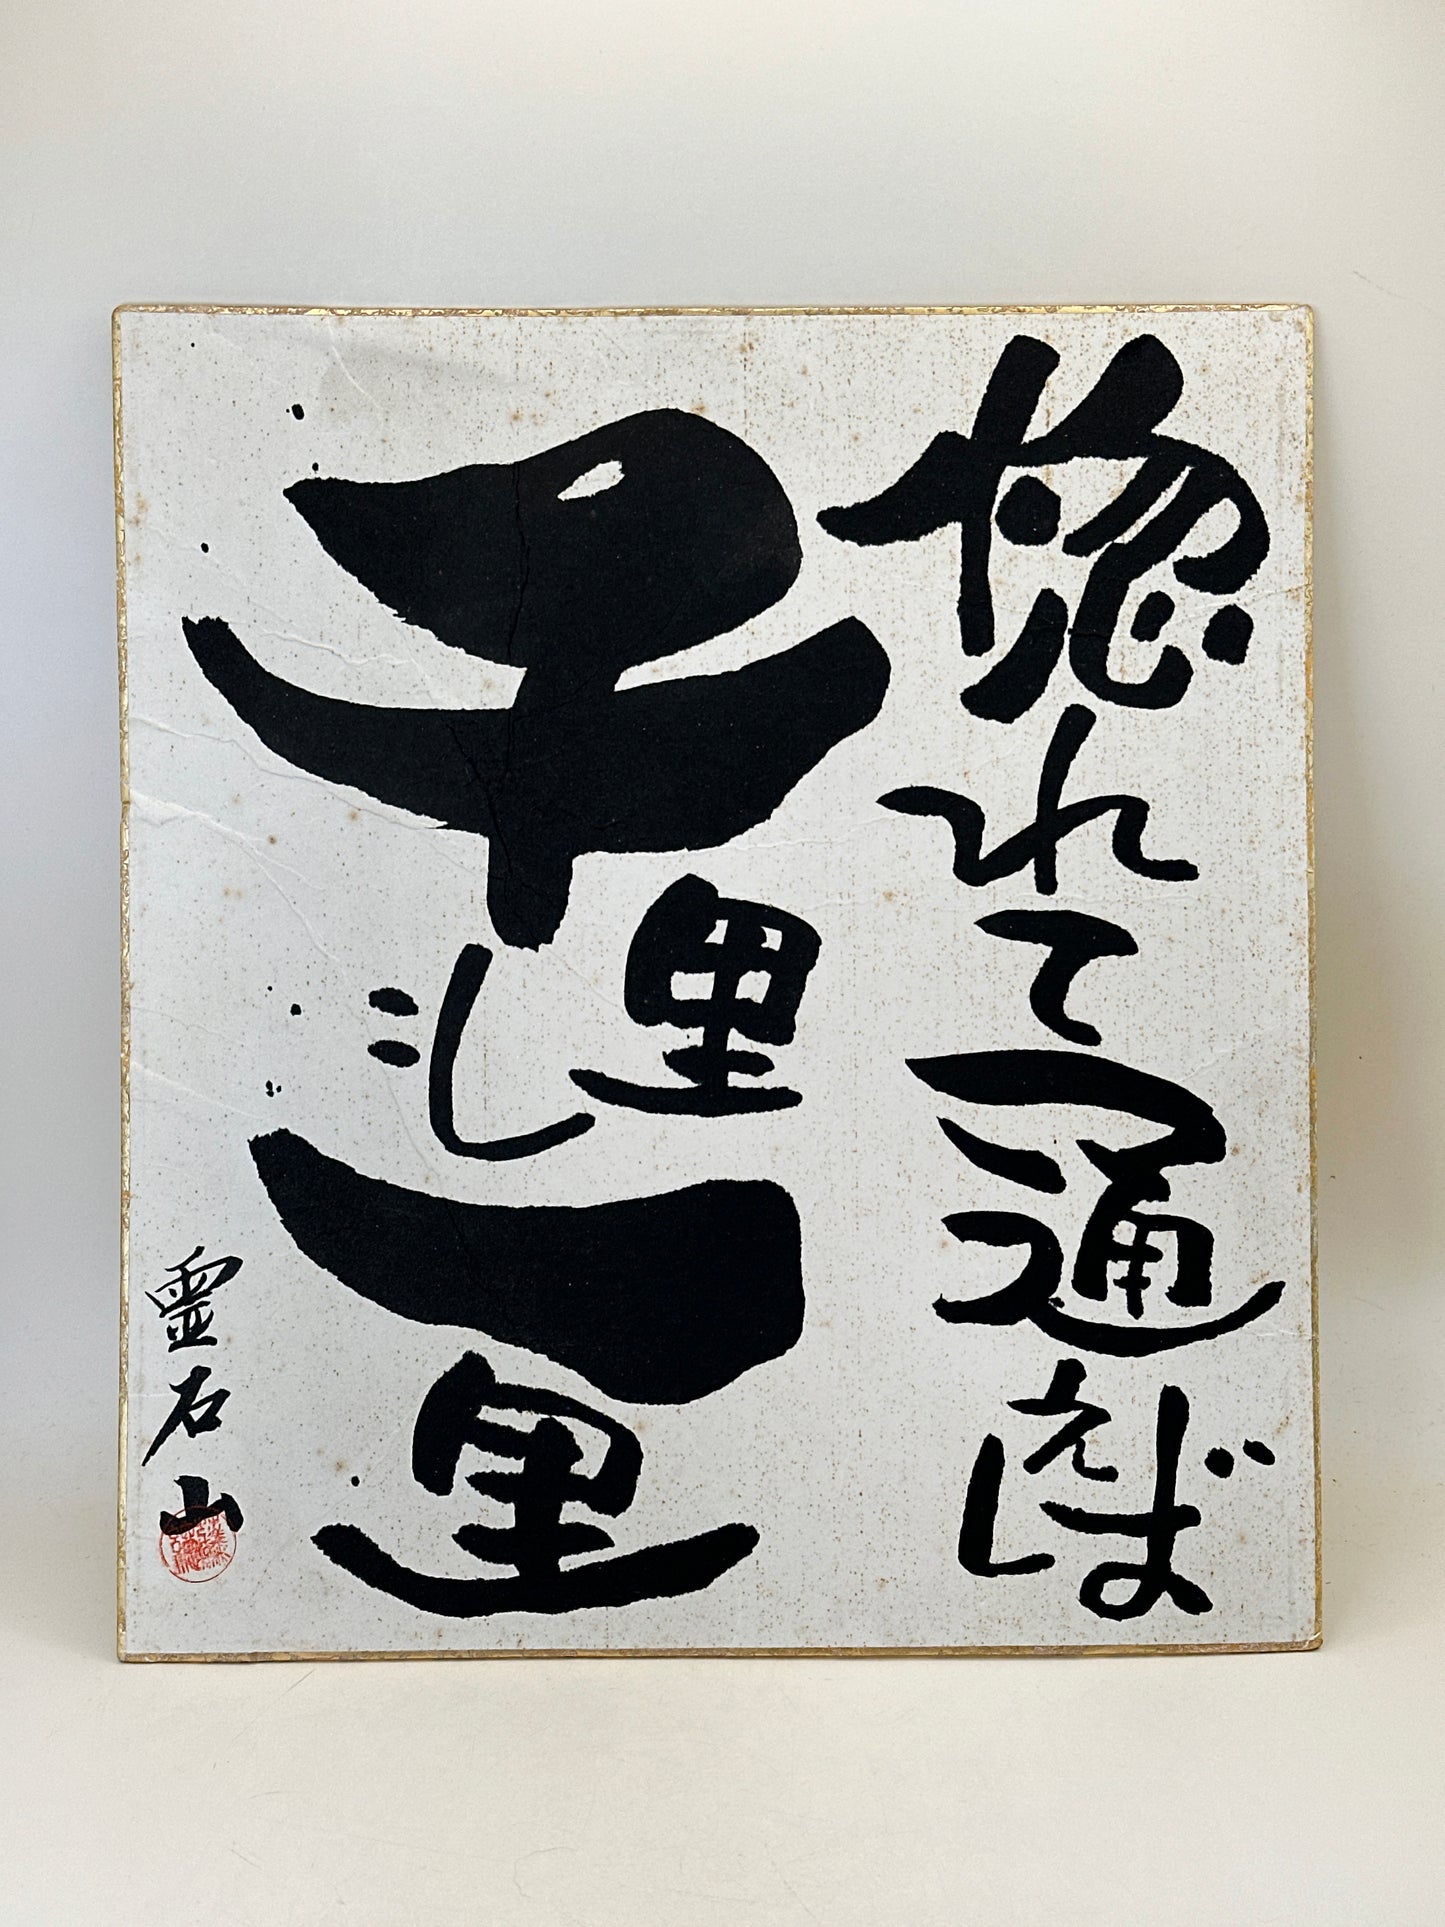 惚れて通えば
千里も一里
霊石山